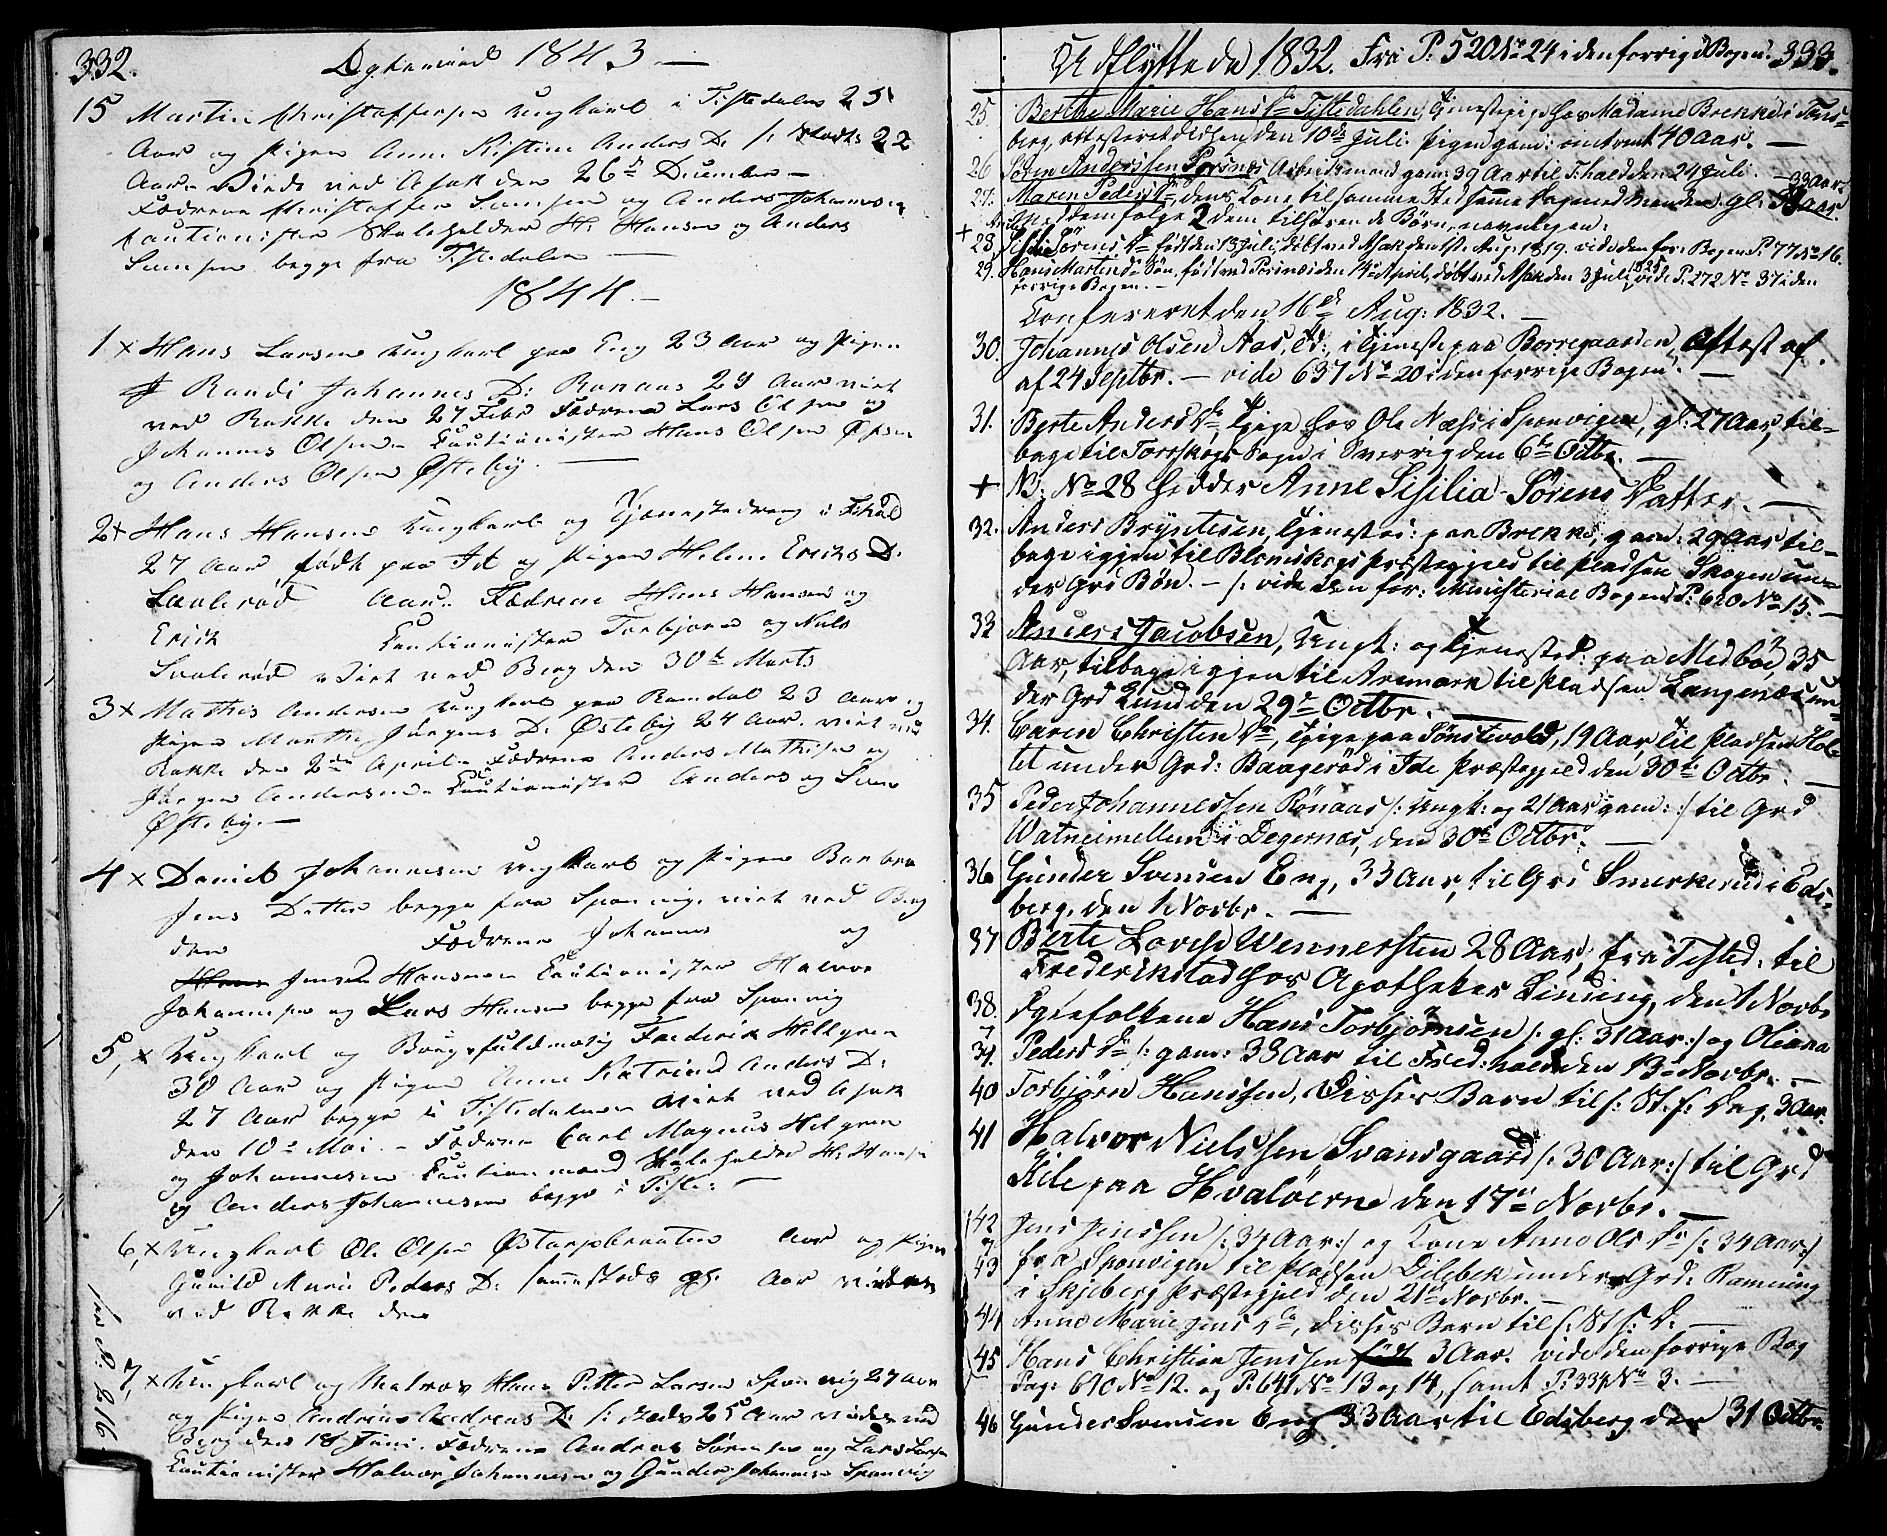 332.
Egteviede 1843 —
15 Martin Christoffersen Ungkarl i Tistedalen 25
Aar og Pigen Anne Kistine Anders D. s: Steds 22
Aar – Viede ved Asak den 26de December –
Fædrene Christoffer Svensen og Anders Johannesen
Cautionister Skoleholder H. Hansen og Anders
Svensen begge fra Tistedalen —
1844. –
1 x Hans Larsen Ungkarl paa Eng 23 Aar og Pigen
Randi Johannes D: Rønaas 29 Aar viet
ved Rokke den 27 Febr Fædrene Lars Olsen og
Johannes Olsen – Cautionister Hans Olsen
og Anders Olsen Østeby. —
2 x Hans Hansen Ungkarl og Tjenestedreng i Fhald
27 Aar født paa Id og Pigen Helene Erichs D:
Aar. Fædrene Hans Hansen og
Erich Cautionister Torbjørn og Niels
viet ved Berg den 30te Marts
3 x Mathis Andersen Ungkarl paa Ramdal 23 Aar og
Pigen Marthe Jørgens D: Østeby 24 Aar. viet ved
Rokke den 2den April – Fædrene Anders Mathisen og
Jørgen Andersen – Cautionister Anders og Svend
Østeby. —
4 x Daniel Johannesen Ungkarl og Pigen Barbra
Jens Datter begge fra Sponvig. viet ved Berg
den Fædrene Johannes og
Jens Hansen Cautionister Halvor
Johannesen og Lars Hansen begge fra Sponvig
5, x Ungkarl og Brugsfuldmægtig Frederik Hillgren
30 Aar og Pigen Anne Katrine Anders D:
27 Aar begge i Tistedalen viet ved Asak
den 10de Mai – Fædrene Carl Magnus Hilgren
og Johannesen Cautionmænd Skoleholder H. Hansen
og Anders Johannesen begge i Tiste: —
6, x Ungkarl Ole Olsen Østorpbraaten Aar og Pigen
Gunild Marie Peders D: sammesteds gl. Aar viet
ved Rokke den
7, x Ungkarl og Matros Hans Petter Larsen Sponvig 27 Aar
og Pigen Andrine Andreas D: s: Steds 25 Aar viede ved
Berg den 18 Juni. Fædrene Andreas Sørensen og Lars Larsen
Cautionister Halvor Johannesen og Gunder Johannesen Sponvig
Udflyttede 1832. Fra P: 520 No 24 i den forrige Bogen. 333.
25 Berthe Marie Hans Dr Tistedahlen, Tjenestepige hos Madame Brekke i Tøns-
berg, attesteret didhen den 10de Juli. Pigen gaml: omtrent 40 Aar. —
26 Søren Anderssen Torsnæs Arbeidsmand gam: 39 Aar til Fhald den 24 Juli. –
27. Maren Peders Dr, dens Kone til samme Sted samme Dag med Manden gl: 33 Aar.
Med dem følge 2 dem tilhørende Børn, navnligen:
+ 28 Sørens Dr født den 13 Juli, døbt ved Asak den 1st. Aug. 1819. vide den for: Bogen P: 77 No 16.
29. Hans Martin ds Søn, født ved Torsnæs den 14 April, døbt ved Asak den 3 Juli 1825 vide P: 172 No 37 i den
forrige Bogen. –
Confereret den 16de Aug: 1832. –
30. Johannes Olsen Aas, Td: i Tjeneste paa Borregaarden, Attest af
af 24 Septbr. – vide 637 No 20 i den forrige Bogen. –
31. Berte Anders Dr, Tpige hos Ole Næss i Sponvigen, gl: 27 Aar, til-
bage til Torrskogs Sogn i Sverrig den 6te Octbr. –
+ NB: No 28 hedder Anne Sisilia Sørens Datter. —
32. Anders Bryntesen, Tjenestd: paa Brekke, gam: 29 Aar til-
bage igjen til Blomskogs Præstegjeld til Pladsen Skogen un-
der Grd Bøn. – /: vide den for: Ministerial Bogens P: 620 No 15. –
33 Anders Jacobsen, Ungk: og Tjenested: paa Medbøe, 35
Aar, tilbage igjen til Aremark til Pladsen Langenæs un-
der Grd Lund den 29de Octbr. —
34. Caren Christen Dr, Tpige paa Tønstvold, 19 Aar til Pladsen Hol-
tet under Grd: Baagerød i Ide Præstegjeld den 30te Octbr. —
35 Peder Johannessen Rønaas /: Ungk: og 21 Aar gam: :/ til Grd
Watneimellem i Degernes, den 30te Octbr. —
36 Gunder Svensen Eng, 33 Aar, til Grd Smerkerud i Eds-
berg, den 1 Novbr. —
37 Berte Lovise Wennersten 28 Aar, fra Tisted: til
Frederikstad hos Apotheker Sinding, den 1 Novbr
38. Egtefolkene Hans Torbjørnsen /: gl: 31 Aar :/ og Oliana
39. Peders Dr /: gam: 33 Aar til Fred:hald den 13de Novbr. –
40 Torbjørn Hanssen, Disses Barn til s: St. s: Dag, 3 Aar.
41 Halvor Nielssen Svansgaard /: 30 Aar :/ til Grd
Kile paa Hvaløerne den 17de Novbr. —
42 Jens Jenssen /: 34 Aar :/ og Kone Anne Ols Dr /: 34 Aar :/
43 fra Sponvigen til Pladsen Dilebek under Grd: Ramming
i Skjeberg Præstegjeld den 21de Novbr. –
44 Anne Marie Jens Dr, disses Barn til s: St s: D. —
45 Hans Christian Jenssen født 3 Aar. vide den forrige Bog
Pag: 610 No 12. og P: 641 No 13 og 14, samt P: 334 No 3. —
46 Gunder Svensen Eng 33 Aar til Edsberg den 31 Octbr.